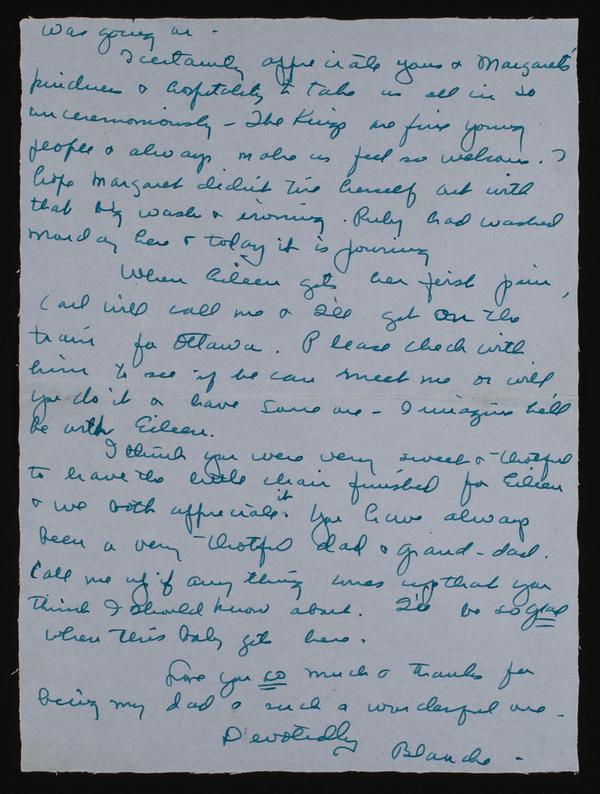 was going on.
I certainly appreciate yours & Margaret's
kindness & hospitality to take us all in so
unceremoniously - The Kings are fine young
people & always make us feel so welcome. I
hope Margaret didn't tire herself out with
that big wash & ironing. Ruby had washed
Monday here & today it is pouring
When Eileen gets her first pain,
Carl will call me & I'll get on the
train for Ottawa. Please check with
him to see if he can meet me or will
you do it or have some one - I imagine he'll
be with Eileen.
I think you were very sweet & thotful
to have the little chair finished for Eileen
& we both appreciate it. You have always
been a very thotful dad & grand-dad.
Call me up if any thing comes up that you
think I should know about. I'll be so glad
when this baby gets here.
Love you so much & thanks for
being my dad & such a wonderful one -
Devotedly
Blanche -